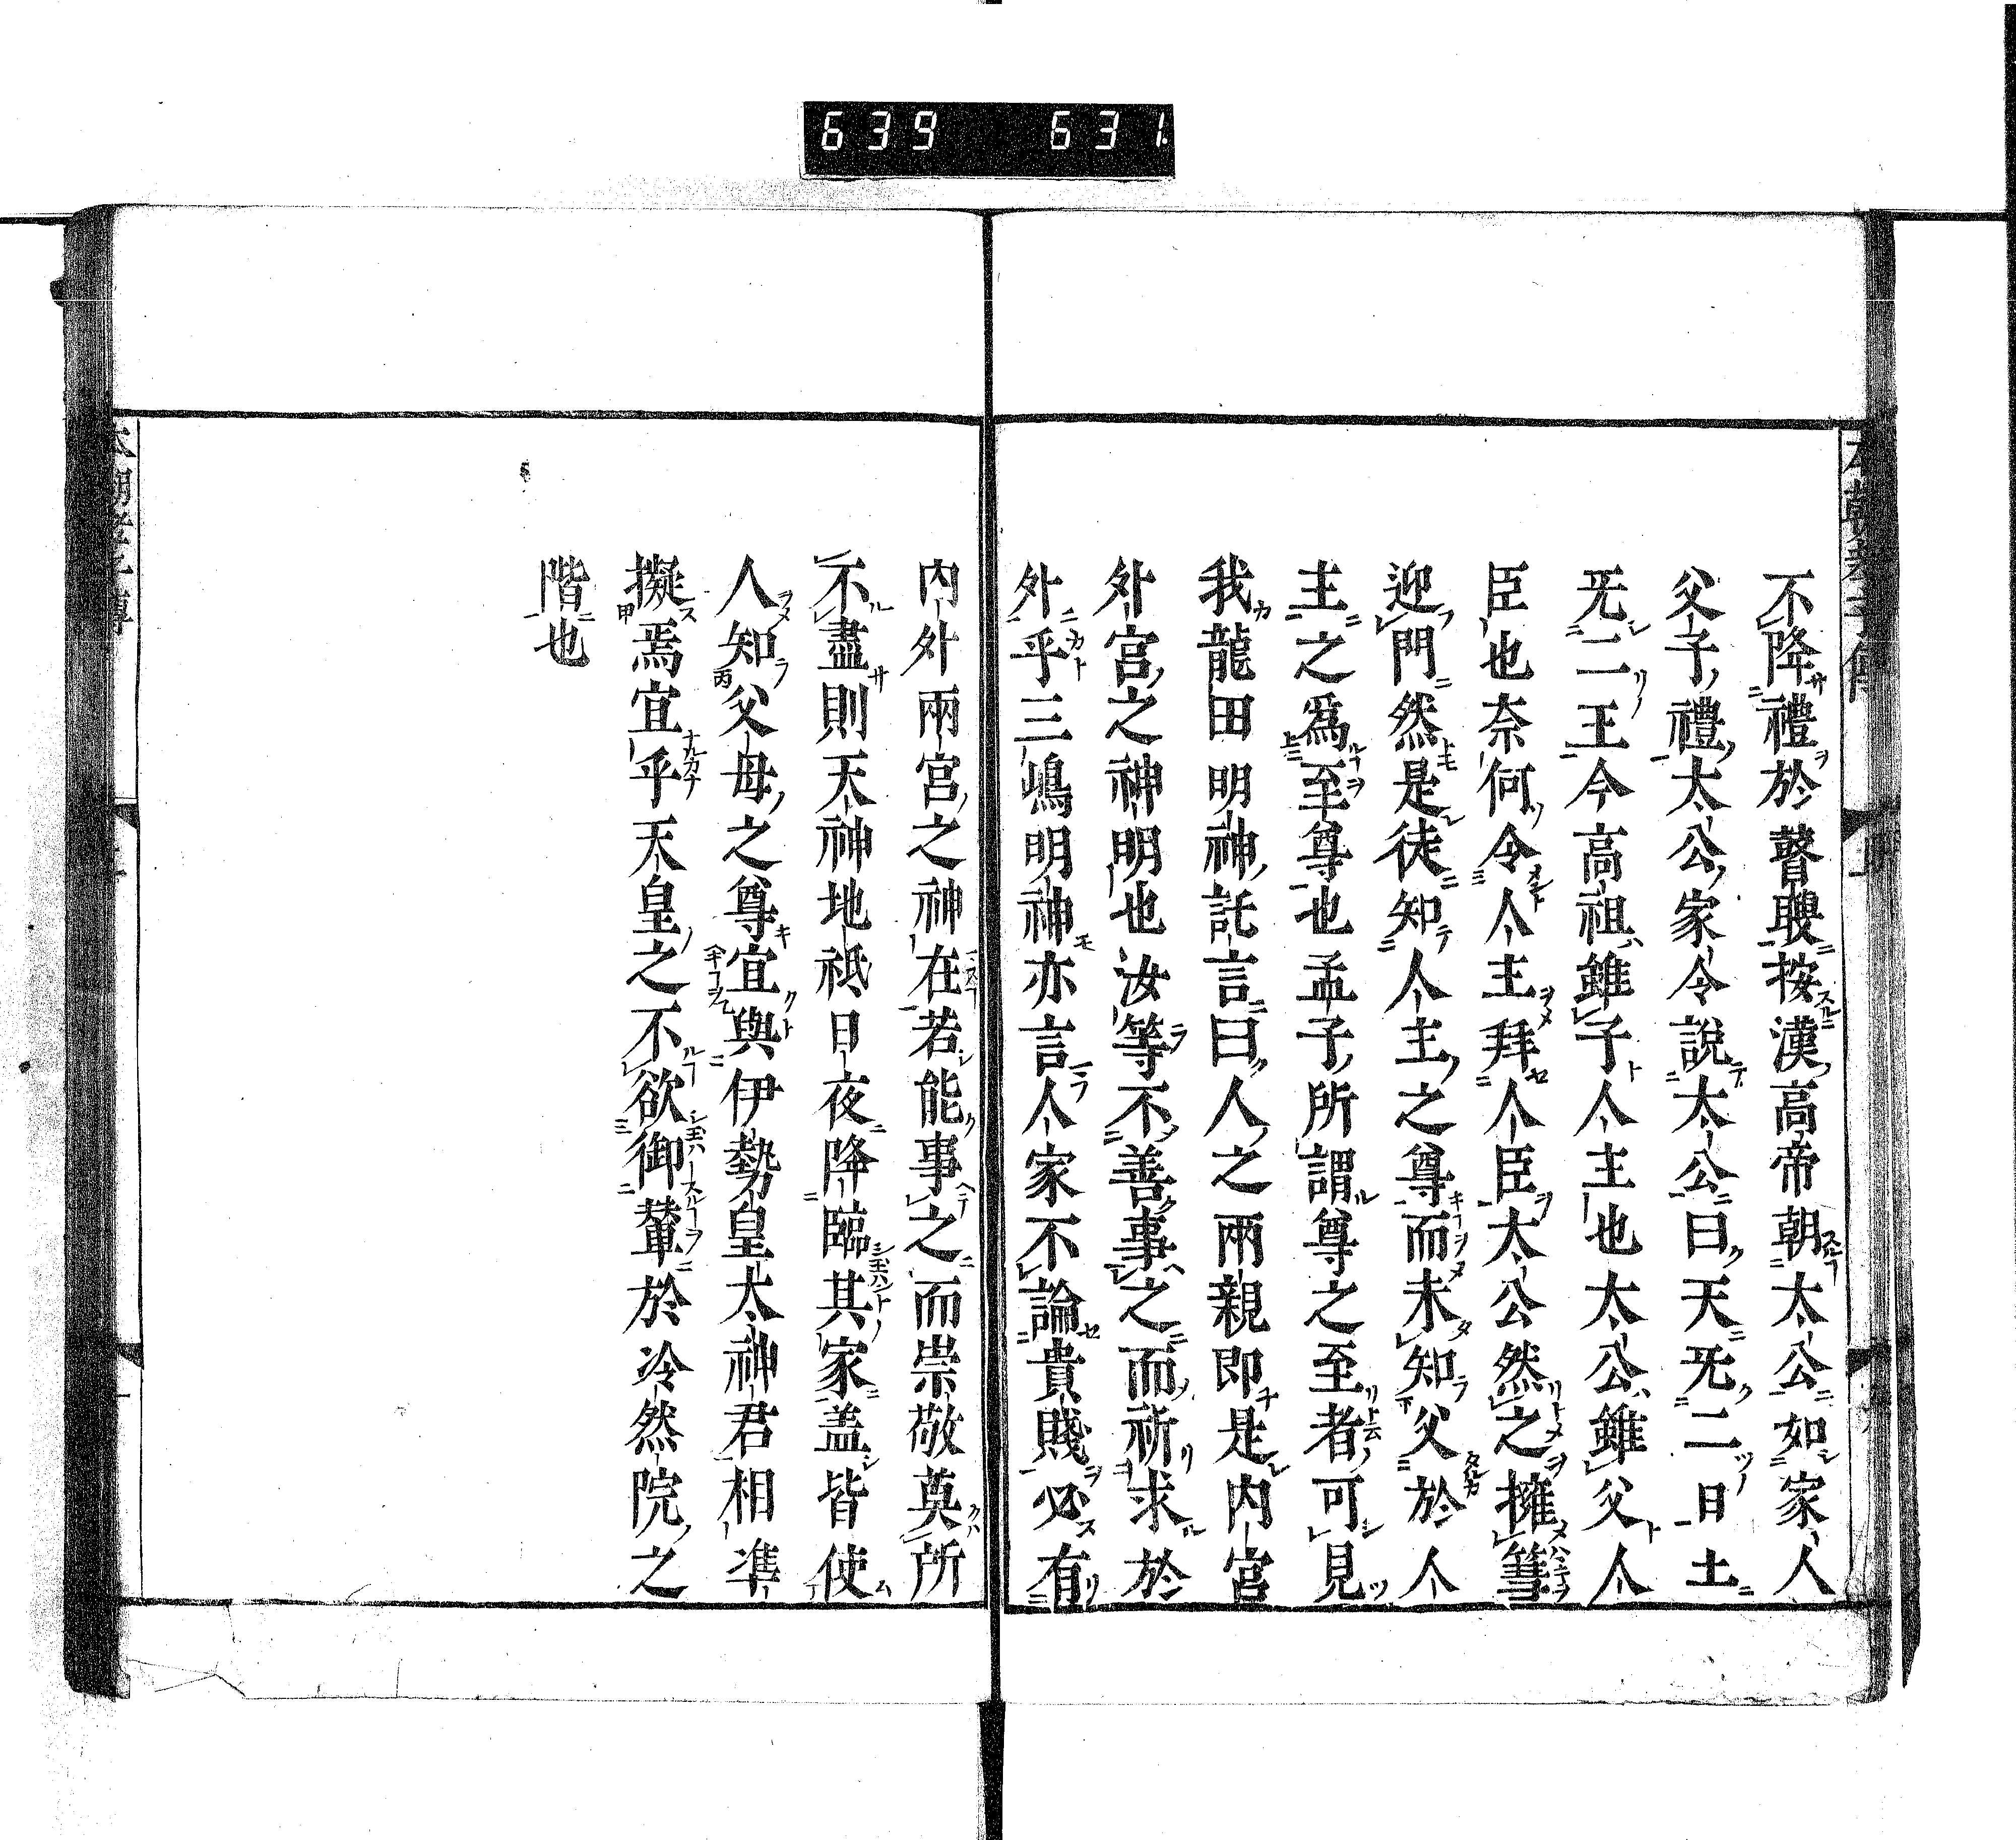 639 631
不降禮於瞽聭按漢高帝朝太公如家人
父子禮太公家令說太公曰天旡二日土
旡二王今高祖雖子人主也太公雖父人
臣也奈何令人主拜人臣太公然之擁篲
迎門然是徒知人主之尊而未知父於人
主之爲至尊也孟子所謂尊之至者可見
我龍田明神託言曰人之兩親即是内宮
外宮之神明也汝等不善事之而祈求於
外乎三嶋明神亦言人家不論貴賤必有
内外兩宮之神在若能事之而崇敬莫所
不盡則天神地祇日夜降臨其家盖皆使
人知父母之尊宜與伊勢皇太神君相凖
擬焉宜乎天皇之不欲御輦於冷然院之
階也